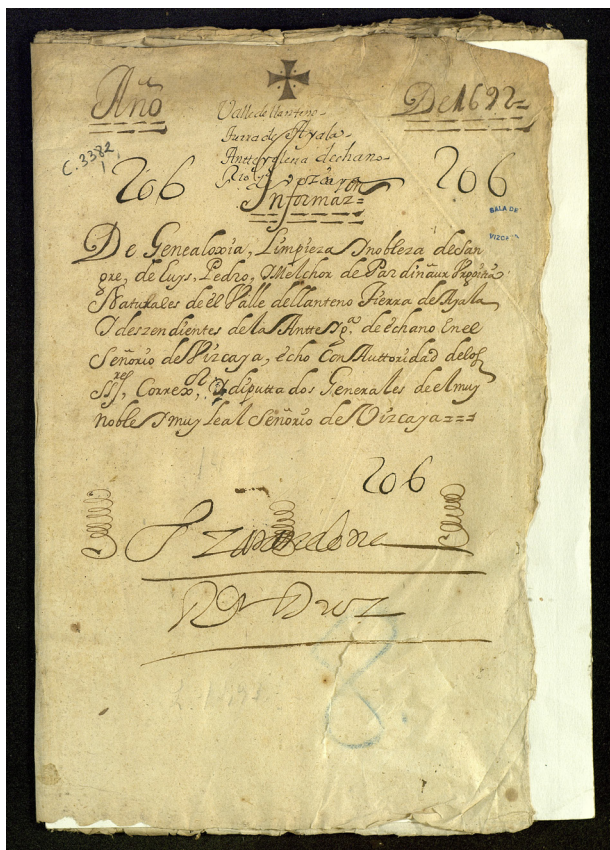 Año
De 1692=
Valle de llanteno-
tierra de Ayala-
Antteyglesia dechano-
C. 3382
1
206
206
SALA DE
VIZCAYA
Informaz on=
De Genealoxia, Limpieza Y nobleza de San
gre, de Luys, Pedro, Y Melchor de Pardinaur
Naturales de el Valle de llanteno Tierra de Ayala
Y deszendientes de la Antteygª. de echano En el
Señorio de Vizcaya, echo Con Auttoridad delos
SSres, Correxor, Y diputtados Generales de el muy
noble Y muy Leal Señorio de Vizcaya===
206
8